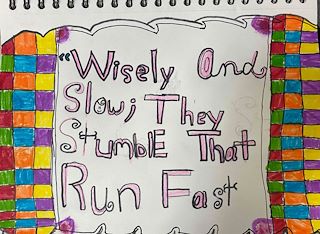 "Wisely And
Slow; They
Stumble That
Run Fast